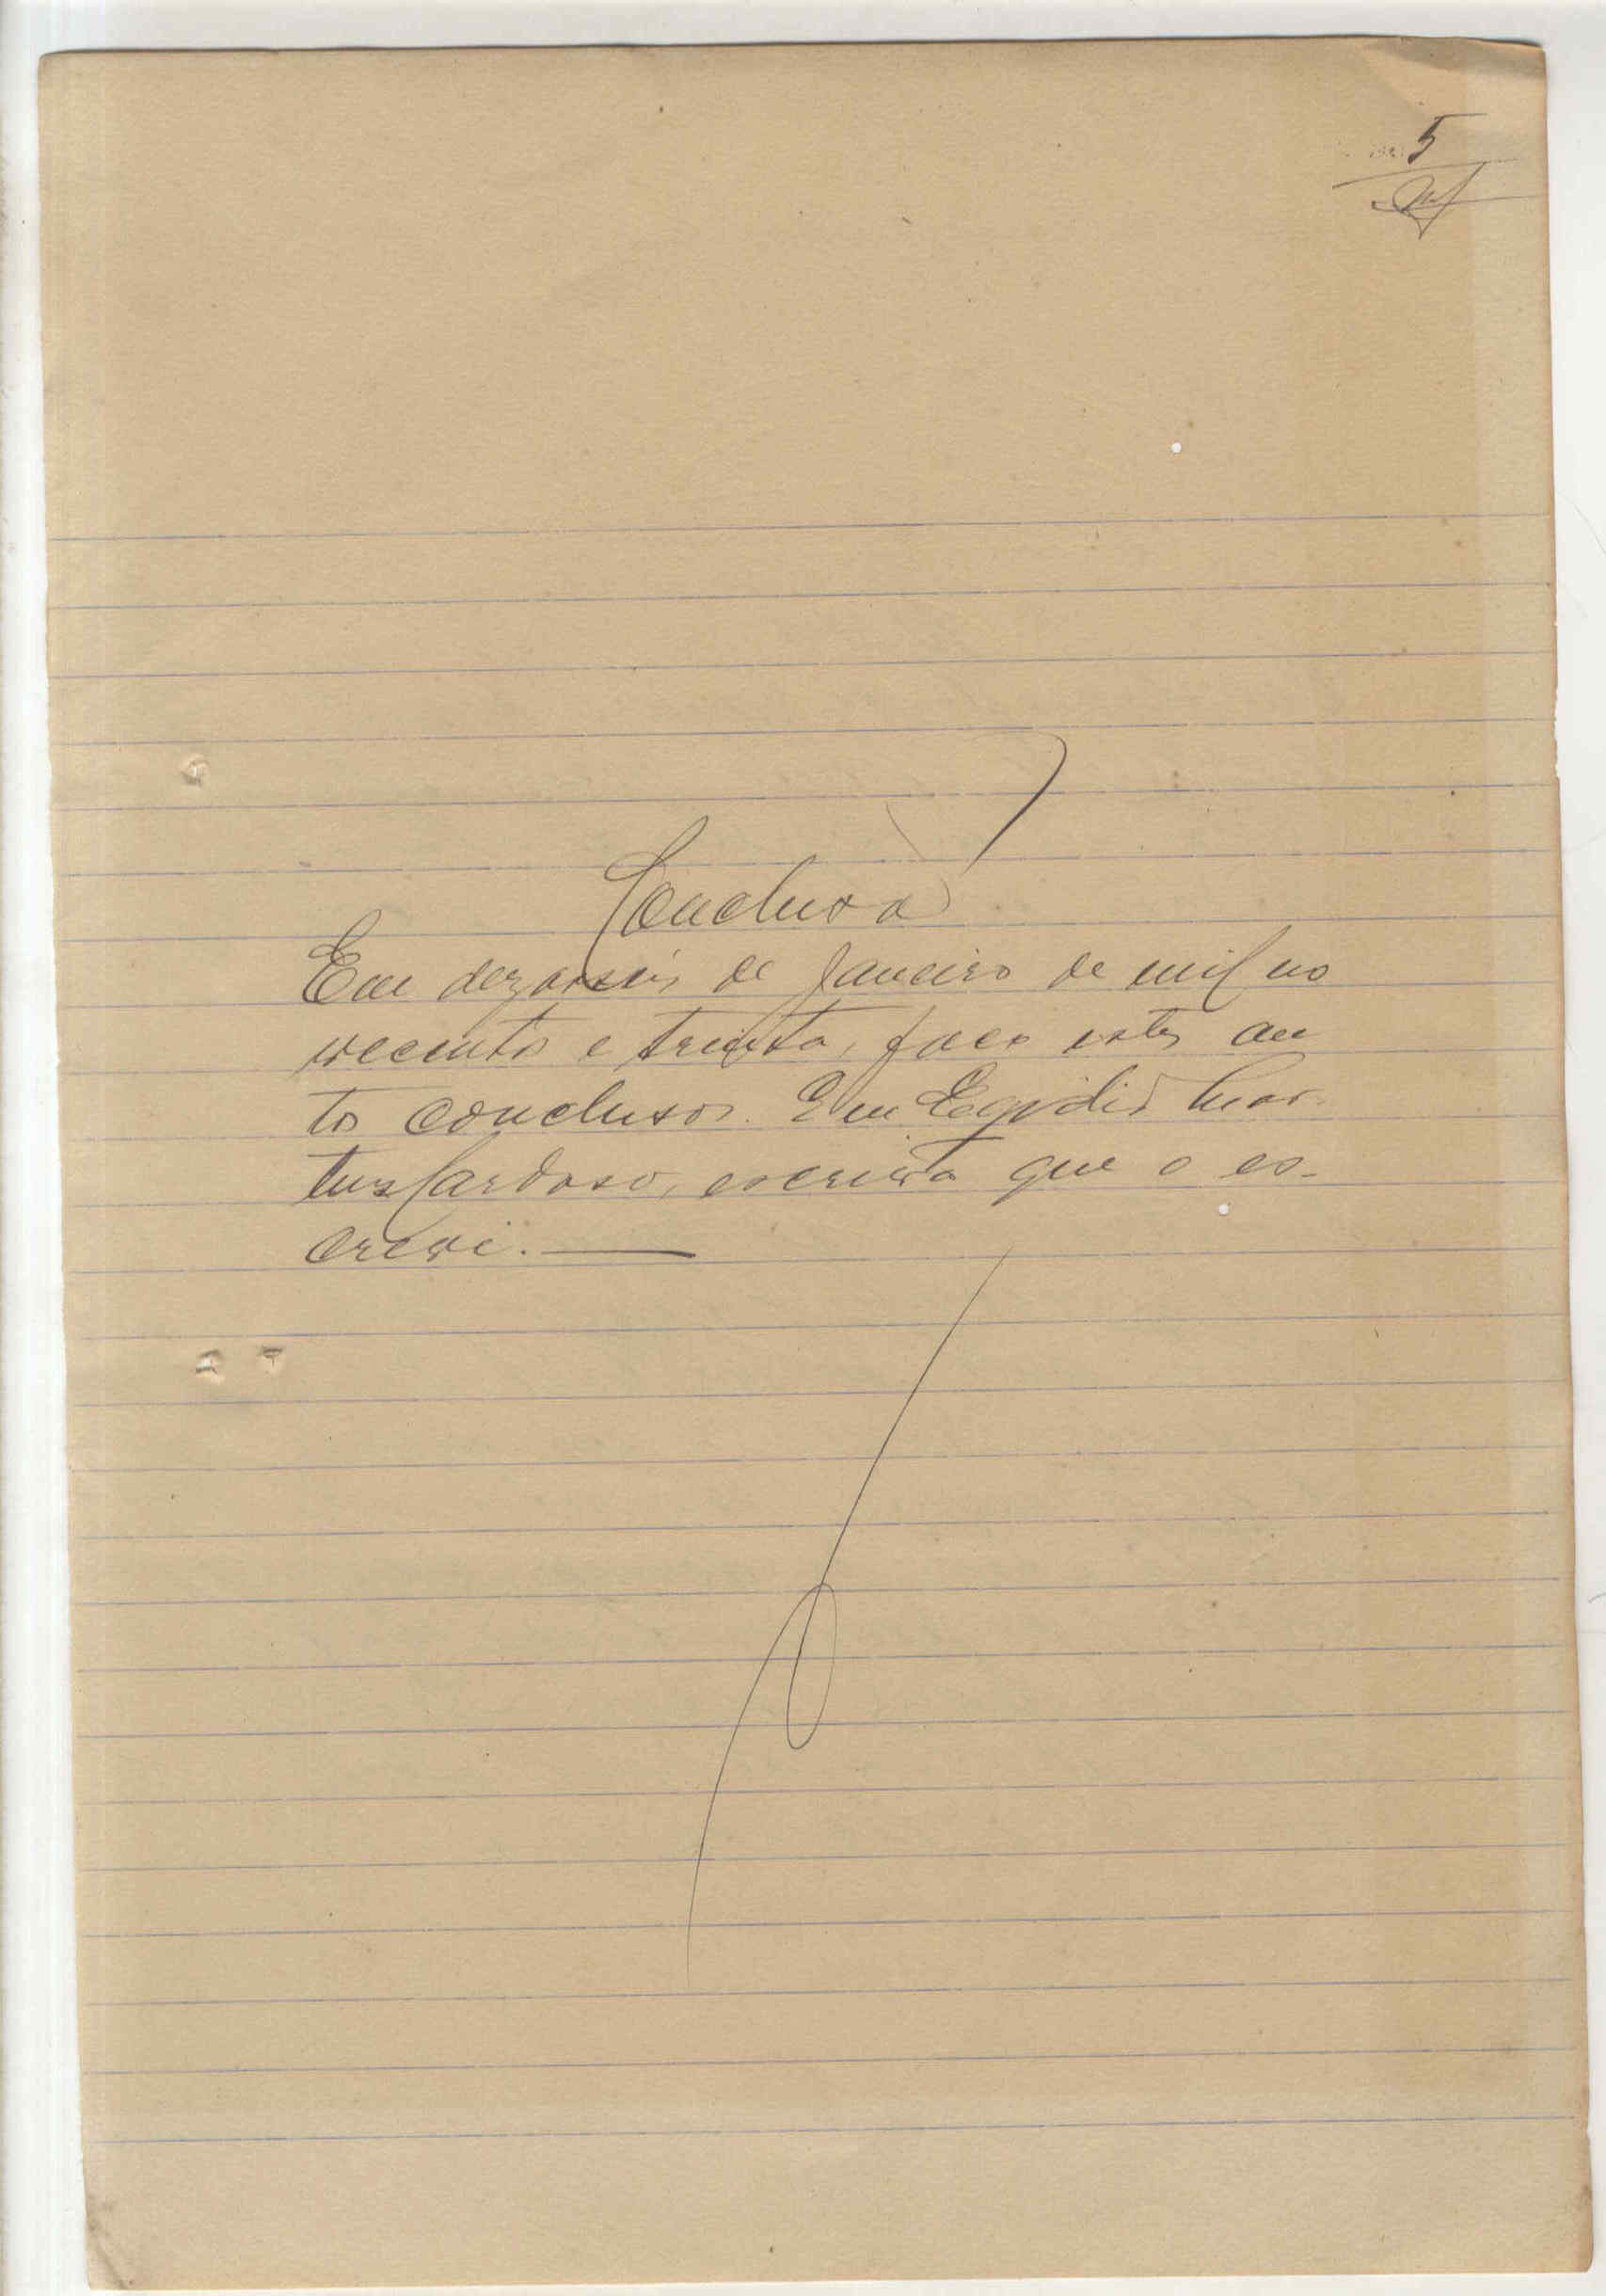 5
Conclusão
Em dezaseis de Janeiro de mil no
vecentos e trinta, faço estes au
tos conclusos. Eu Egidio Mar-
tins Cardoso, escrivão que o es-
crevi.